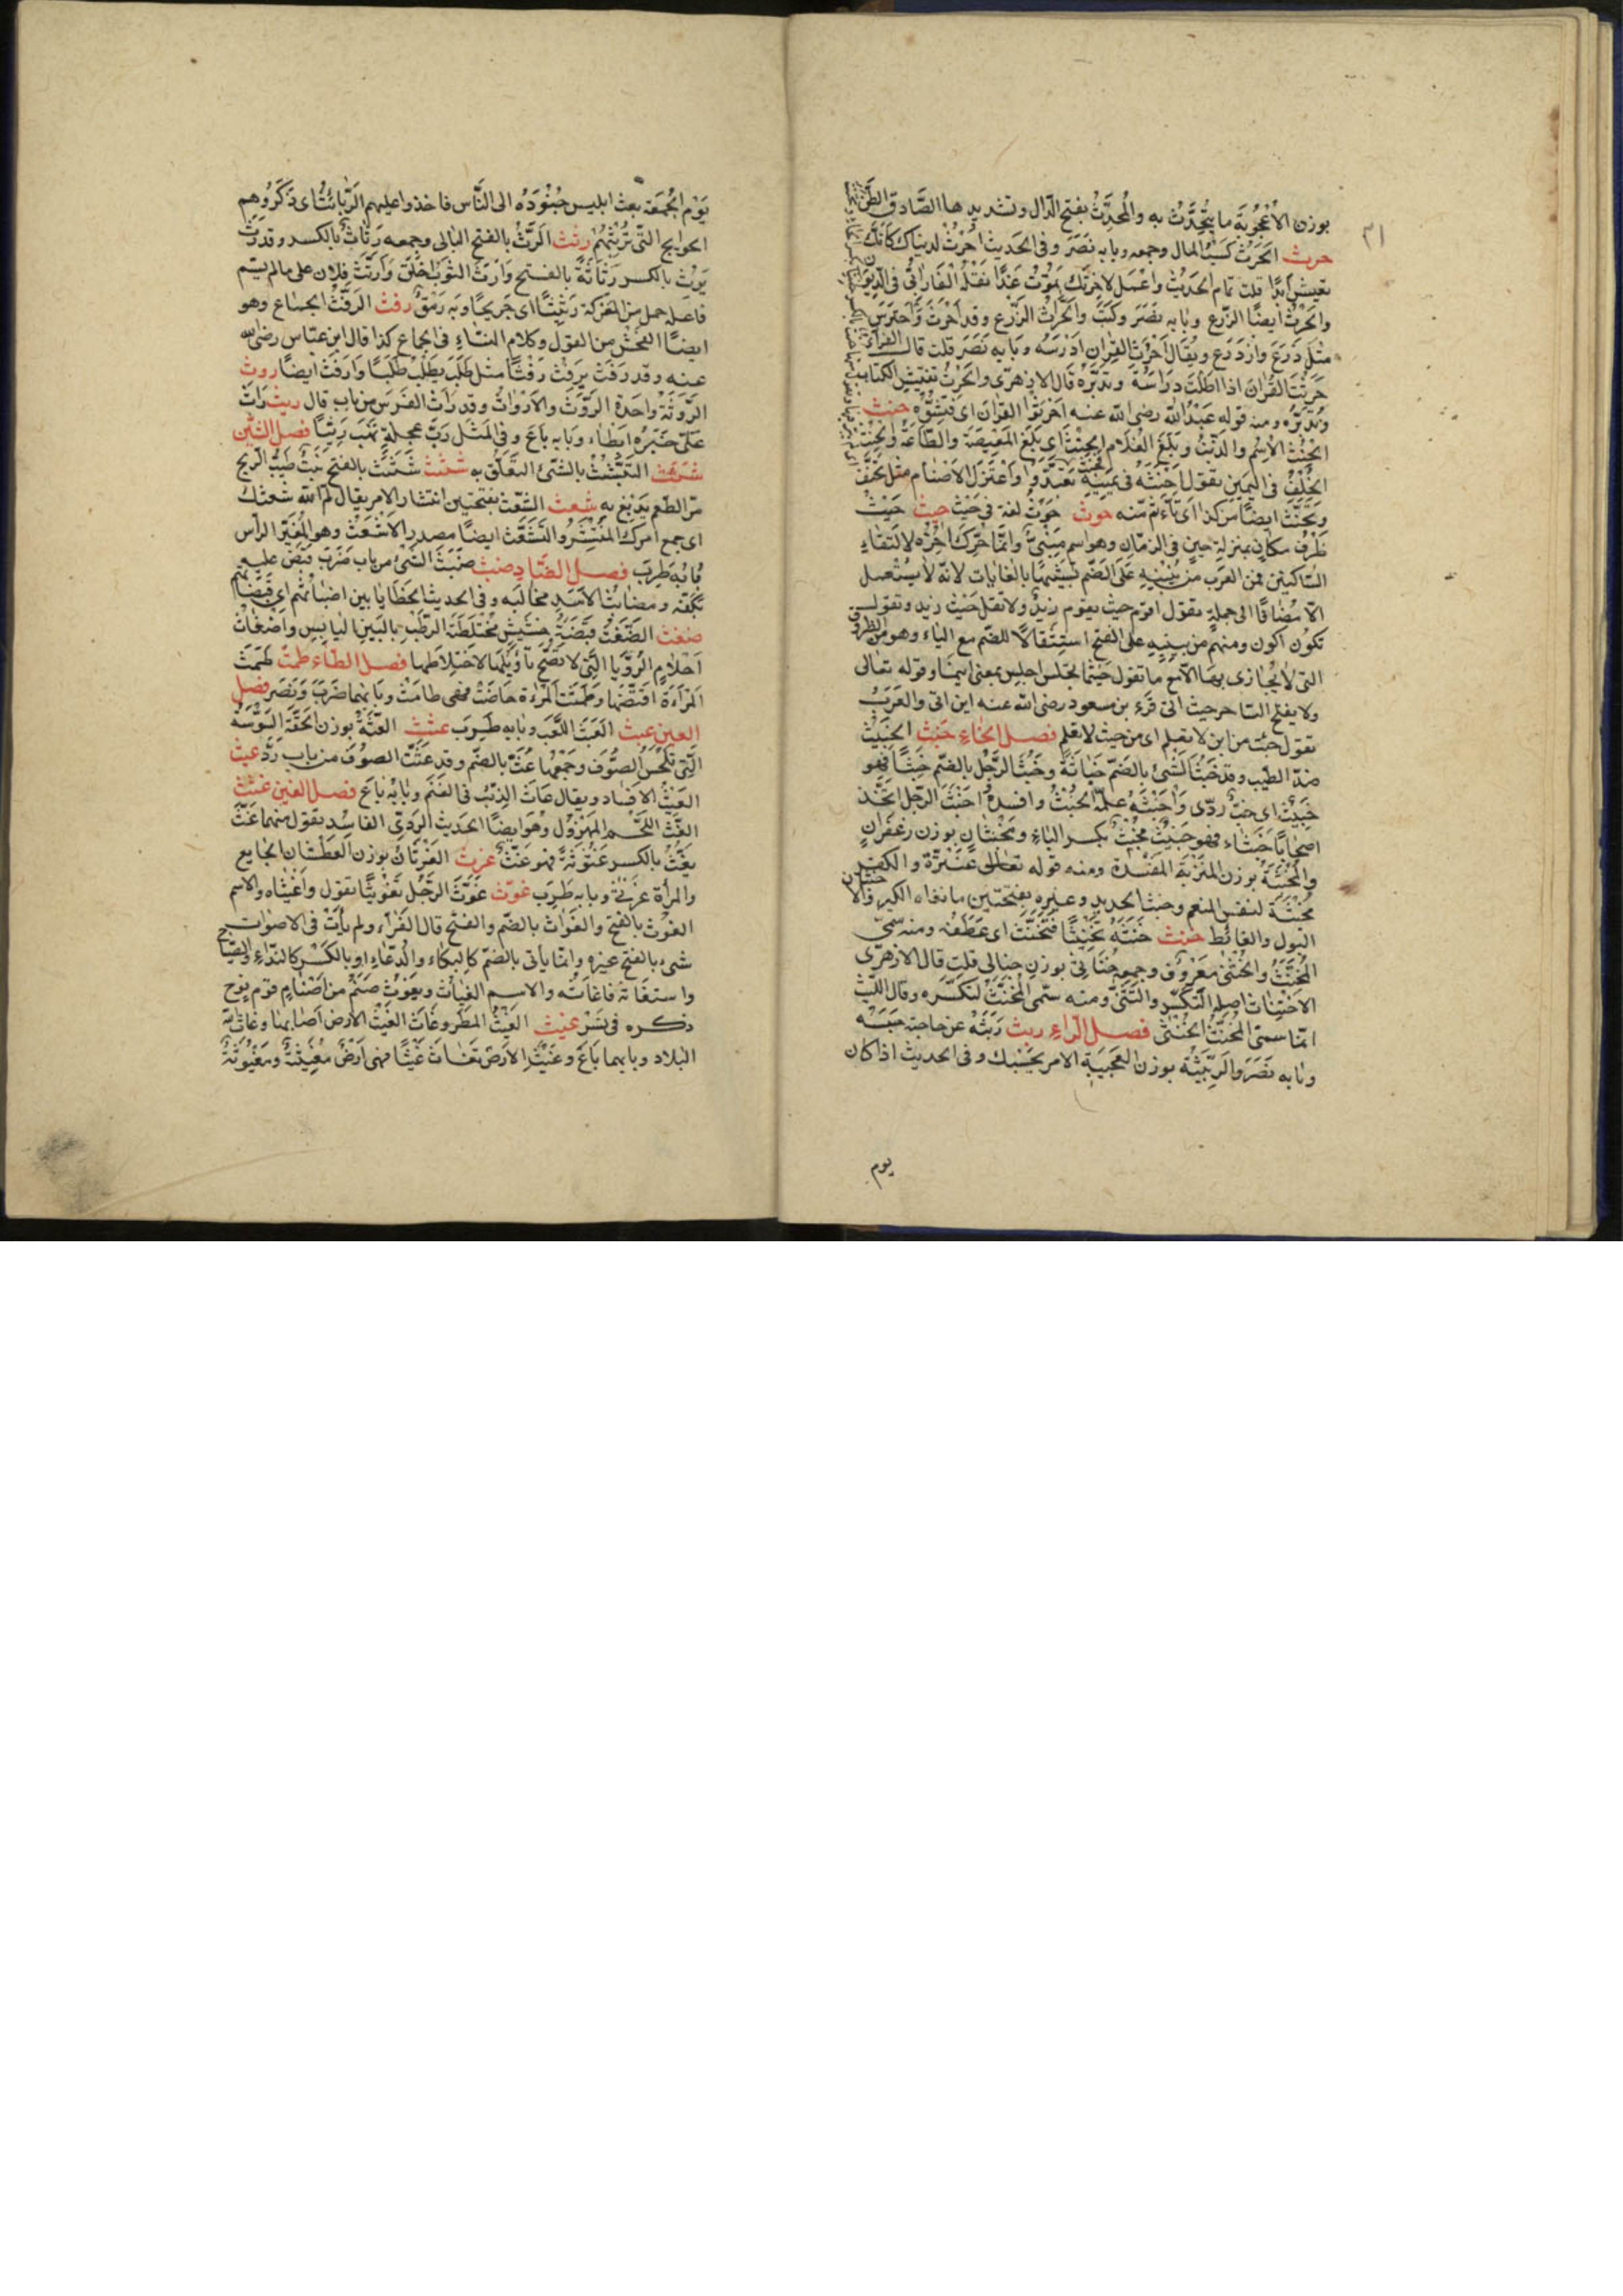 ٣١
بوزن الأعجوبة ما يتحدث به والمحدث بفتح الدال وتشديدها الصادق الظن
حرث الحرث كسب المال وجمعه وبابه نصر وفي الحديث احرث لدنياك كأنك
تعيش أبدا قلت تمام الحديث واعمل لآخرتك كأنك تموت غدا نقله الفارابي في الديوان
والحرث أيضا الزرع وبابه نصر وكتب والحراث الزراع وقد احرث واحترث
مثل زرع وازدرع ويقال احرث القرآن ادرسه وبابه نصر قلت قال الفراء
حرثت القرآن اذا اطلت دراسته وتدبره قال الازهري والحرث تفتيش الكتاب
وتدبره ومنه قوله عبد الله رضي الله عنه احرثوا القرآن اي فتشوه حنث
الحنث الاسم والذنب وبلغ الغلام الحنث اي بلغ المعصية والطاعة والحنث
الخلف في اليمين تقول احنثه في يمينه تعبدوا واعتزل الاصنام مثل تحنف
وتحنث ايضا من كذا اي تأثم منه حوث حوث لغة في حيث حيث حيث
ظرف مكان بمنزلة حين في الزمان وهو اسم مبني وانما حرك آخره لالتقاء
الساكنين فمن العرب من يبنيه على الضم تشبيها بالغايات لانه لا يستعمل
الا مضافا الى جملة تقول اقوم حيث يقوم زيد ولا تقل حيث زيد وتقول
تكون اكون ومنهم من يبنيه على الفتح استثقالا للضم مع الياء وهو من الظروف
التي لا يجازى بها الا مع ما تقول حيثما تجلس اجلس بمعنى اينما وقوله تعالى
ولا يفلح الساحر حيث اتى قرء بن مسعود رضي الله عنه اين اتى والعرب
تقول جئت من اين لا تعلم اي من حيث لا تعلم فصل الخاء خبث الخبيث
ضد الطيب وقد خبث الشئ بالضم خباثة وخبث الرجل بالضم خبثا فهو
خبيث اي خب ردي واخبثه علمه الخبث وافسده اخبث الرجل اتخذ
اصحابا خبثاء فهو خبيث مخبث بكسر الباء ومخبثان بوزن زعفران
والمخبثة بوزن المتربة المفسدة ومنه قوله تعالى عنترة والكفر
مخبثة لنفس المنعم وخبث الحديد وغيره بفتحتين ما نفاه الكير والاخبثان
البول والغائط خنث خنثه تخنيثا فتخنث اي عطفه ومنه سمي
المخنث والخنثى معروف وجمعه خناثى بوزن حبالى قلت قال الازهري
الاختناث اصله التكسر والتثني ومنه سمي المخنث لتكسره وقال الليث
انما سمي المخنث الخنثى فصل الراء ربث ربثه عن حاجته حبسه
وبابه نصر والربيثة بوزن العجيبة الامر يحبسك وفي الحديث اذا كان
يوم
يوم الجمعة بعث ابليس جنوده الى الناس فاخذوا عليهم الربائث اي ذكروهم
الحوايج التي تربثهم رثث الرث بالفتح البالي وجمعه رثاث بالكسر وقد رث
يرث بالكسر رثاثة بالفتح وارث الثوب اخلق وارتث فلان على ما لم يسم
فاعله حمل من المعركة رثيثا اي جريحا وبه رمق رفث الرفث الجماع وهو
ايضا الفحش من القول وكلام النساء في الجماع كذا قال ابن عباس رضي الله
عنه وقد رفث يرفث رفثا مثل طلب يطلب طلبا وارفث ايضا روث
الروثة واحدة الروث والارواث وقد راث الفرس من باب قال ريث راث
علي خبره ابطاء وبابه باع وفي المثل رب عجلة تهب ريثا فصل الشين
شبث التشبث بالشئ التعلق به شثث شث بالفتح نبت طيب الريح
مر الطعم يدبغ به شعث الشعث بفتحتين انتشار الامر يقال لم الله شعثك
اي جمع امرك المنتشر والشعث ايضا مصدر الاشعث وهو المغبر الرأس
وبابه طرب فصل الضاد ضبث ضبث الشئ من باب ضرب قبض عليه
بكفه ومضابث الاسد مخالبه وفي الحديث الخطايا بين اضباثهم اي قبضاتهم
ضغث الضغث قبضة حشيش مختلطة الرطب باليابس واضغاث
احلام الرؤيا التي لا تصح تأويلها لاختلاطها فصل الطاء طمث طمث
المرأة افتضها وطمثت المرءة حاضت فهي طامث وبابهما ضرب ونصر فصل
العين عبث العبث اللعب وبابه طرب عثث العثة بوزن الحقة السوسة
التي تلحس الصوف وجمعها عث بالضم وقد عثت الصوف من باب رد عيث
العيث الافساد ويقال عاث الذئب في الغنم وبابه باع فصل الغين غثث
الغث اللحم المهزول وهو ايضا الحديث الردي الفاسد تقول منهما غث
يغث بالكسر غثوثة فهو غث غرث الغرثان بوزن العطشان الجايع
والمرأة غرثى وبابه طرب غوث غوث الرجل تغويثا تقول واغثياه والاسم
الغوث بالفتح والغواث بالضم والفتح قال الفراء ولم يأت في الاصوات
شئ بالفتح غيره وانما يأتي بالضم كالبكاء والدعاء او بالكسر كالنداء والصياح
واستغاثه فاغاثه والاسم الغياث ويغوث صنم من اصنام قوم نوح
ذكره في نسر غيث الغيث المطر وغاث الغيث الارض اصابها وغاث الله
البلاد وبابهما باع وغيثت الارض تغاث غيثا فهي ارض مغيثة ومغيوثة